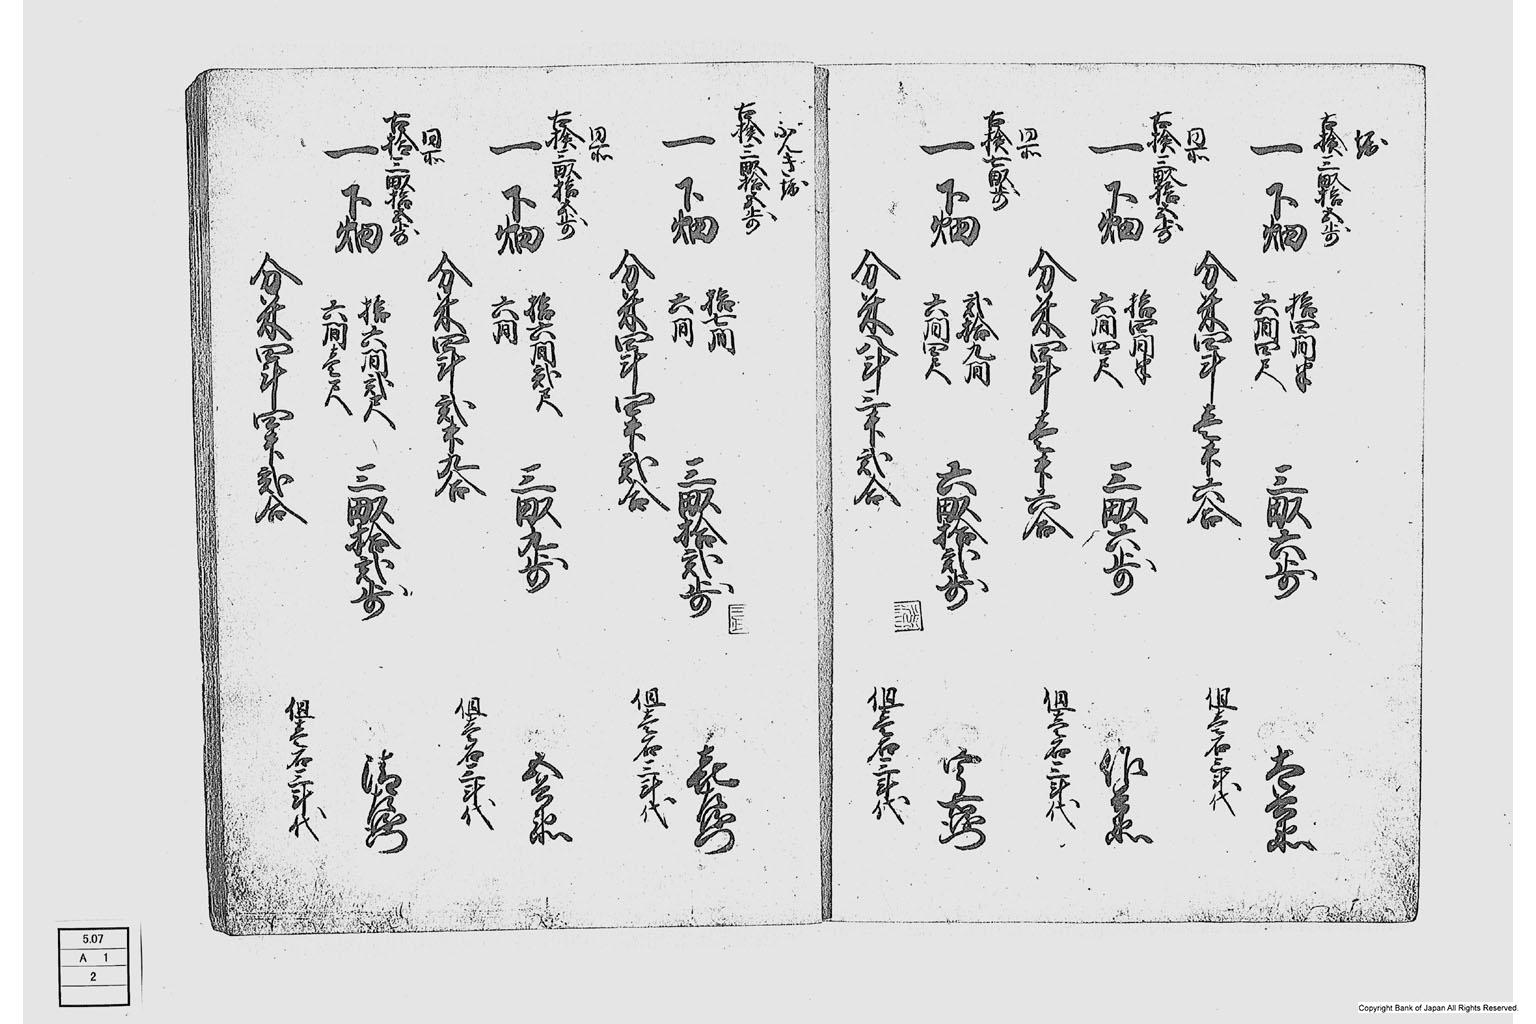 堀
古検三畝拾五歩
一下畑
拾四間半
六間四尺
三畝六歩
太兵衛
分米四斗壱升六合
但壱石三斗代
同所
古検三畝拾五歩
一下畑
拾四間半
六間四尺
三畝六歩
作兵衛
分米四斗壱升六合
但壱石三斗代
同所
古検七畝歩
一下畑
弐拾九間
六間四尺
六畝拾弐歩
宇右衛門
分米八斗三升弐合
但壱石三斗代
ぶんき堀
古検三畝拾五歩
一下畑
拾七間
六間
三畝拾弐歩
分米四斗四升弐合
但壱石三斗代
同所
古検三畝拾五歩
一下畑
拾六間弐尺
六間
三畝九歩
分米四斗弐升九合
但壱石三斗代
同所
古検三畝拾五歩
一下畑
拾六間弐尺
六間壱尺
三畝拾弐歩
分米四斗四升弐合
但壱石三斗代
5.07
A 1
2
Copyright Bank of Japan All Rights Reserved.